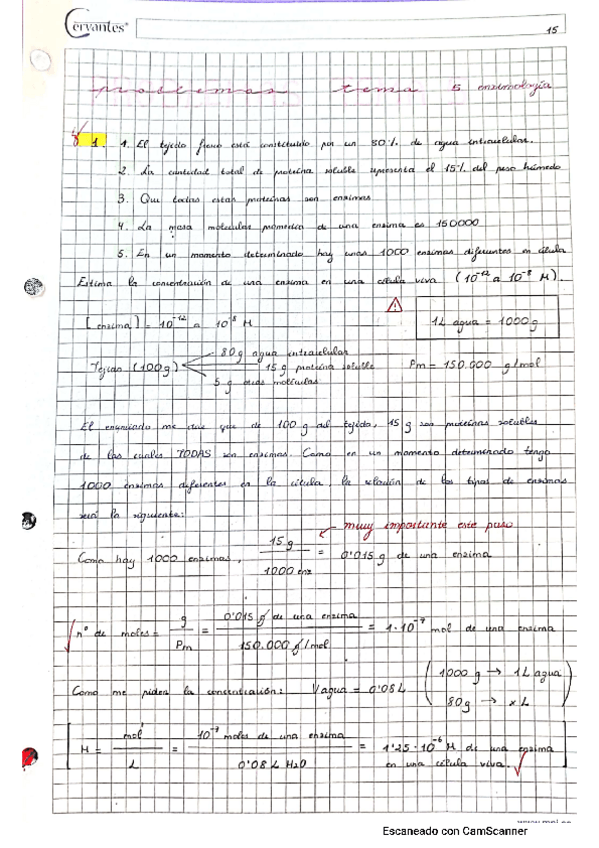 Cervantes
15
problemas tema 5 enzimología
1. 1. El tejido fresco está constituido por un 80% de agua intracelular.
2. La cantidad total de proteína soluble representa el 15% del peso húmedo
3. Que todas estas proteínas son enzimas
4. La masa molecular promedia de una enzima es 150000
5. En un momento determinado hay unas 1000 enzimas diferentes en célula
Estima la concentración de una enzima en una célula viva (10⁻¹² a 10⁻⁸ M).
[enzima] = 10⁻¹² a 10⁻⁸ M
1L agua = 1000 g
Tejido (100g)
80 g agua intracelular
15 g proteína soluble
5 g otras moléculas
Pm = 150.000 g/mol
El enunciado me dice que de 100 g del tejido, 15 g son proteínas solubles
de las cuales TODAS son enzimas. Como en un momento determinado tengo
1000 enzimas diferentes en la célula, la relación de los tipos de enzimas
será la siguiente:
muy importante este paso
Como hay 1000 enzimas, 15 g / 1000 enz = 0'015 g de una enzima
nº de moles = g / Pm = 0'015 g de una enzima / 150.000 g/mol = 1·10⁻⁷ mol de una enzima
Como me piden la concentración: Vagua = 0'08 L (1000 g → 1L agua
80g → x L)
[M = mol / L = 10⁻⁷ moles de una enzima / 0'08 L H₂O = 1'25·10⁻⁶ M de una enzima
en una célula viva.]
Escaneado con CamScanner